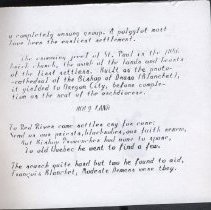 a completely unsung group. A polyglot most
have been the earliest settlement.
The crowning jewel of St. Paul is the 1846
brick church, the work of the hands and hearts
of the first settlers. Built as the proto-
-cathedral of the Bishop of Drasa (Blanchet),
it yielded to Oregon City, before comple-
tion as the seat of the archdiocese.
HOLY LAND
To Red River came settlers cry for cure:
Send us our priests, blackrobes, our faith secure,
But Bishop Provencher had none to spare,
To old Quebec he went to find a few.
The search quite hard but two he found to aid,
François Blanchet, Modeste Demers were they.